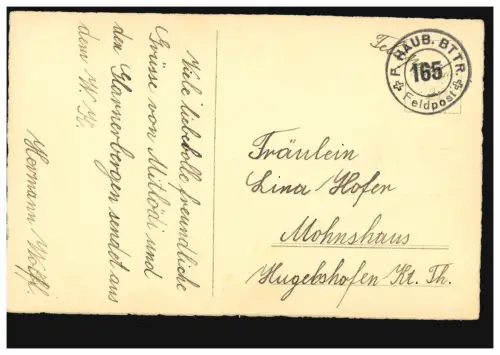 Viele liebevolle freundliche
Grüsse von Mitlödi und
den Glarnerbergen sendet aus
dem W. K.
Hermann
F. HAUB. BTTR.
165
Feldpost
Fräulein
Lina Hofer
Mohnshaus
Hugelshofen Kt. Th.